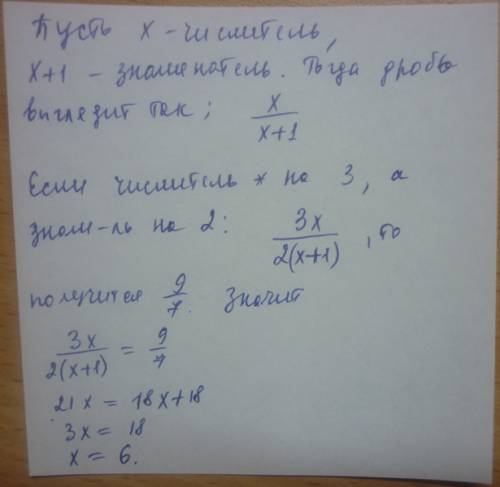 Пусть x - числитель,
x+1 - знаменатель. Тогда дробь
выглядит так: x/(x+1)
Если числитель * на 3, а
знам-ль на 2: 3x/(2(x+1)), то
получится 9/7. Значит
3x/(2(x+1)) = 9/7
21x = 18x+18
3x = 18
x = 6.